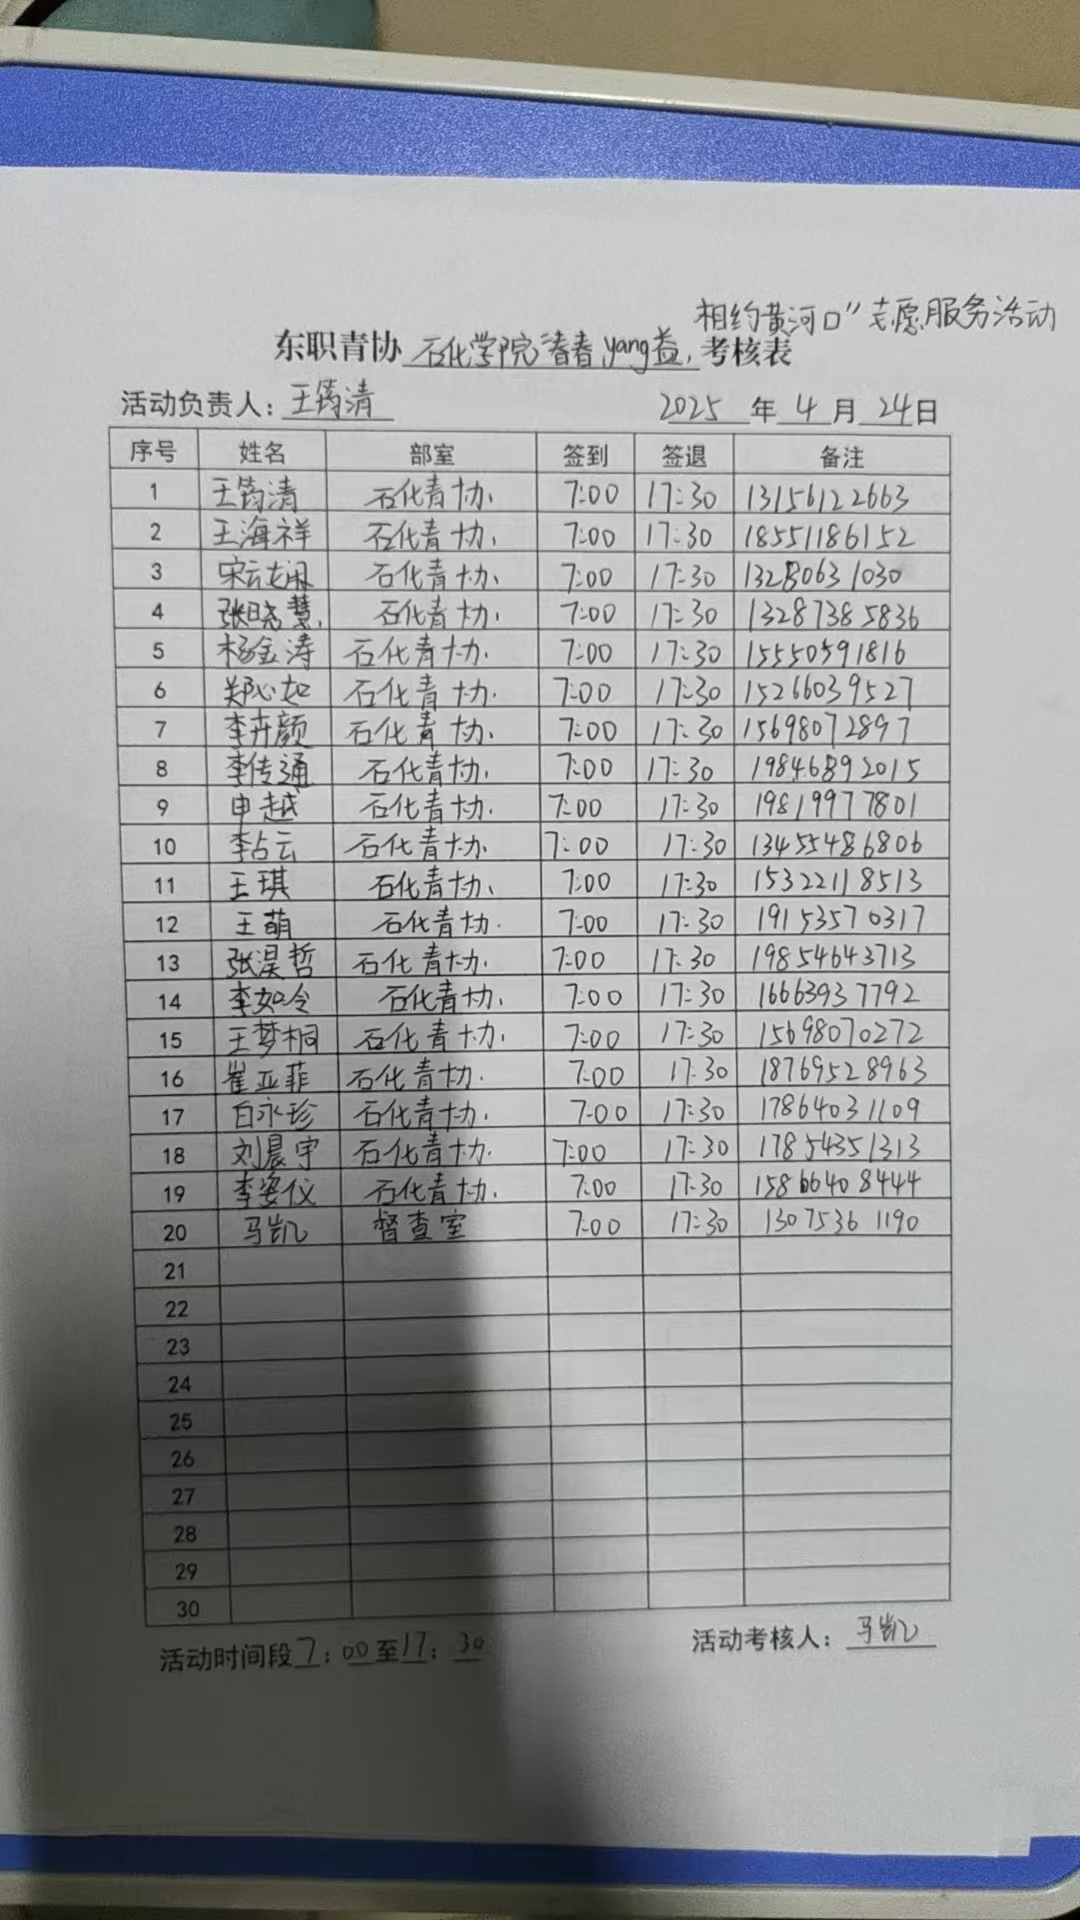 相约黄河口”志愿服务活动
东职青协 石化学院“青春yang益, 考核表
活动负责人: 王筠清 2025 年 4 月 24日
序号 姓名 部室 签到 签退 备注
1 王筠清 石化青协 7:00 17:30 13156122663
2 王海祥 石化青协 7:00 17:30 18551186152
3 石化青协 7:00 17:30 13280631030
4 张晓慧 石化青协 7:00 17:30 13287385836
5 杨金涛 石化青协 7:00 17:30 15550591816
6 郑心如 石化青协 7:00 17:30 15266039527
7 李卉颜 石化青协 7:00 17:30 15698072897
8 李传通 石化青协 7:00 17:30 19846892015
9 申越 石化青协 7:00 17:30 19819977801
10 李占云 石化青协 7:00 17:30 13455486806
11 王琪 石化青协 7:00 17:30 15322118513
12 王萌 石化青协 7:00 17:30 19153570317
13 张昊哲 石化青协 7:00 17:30 19854643713
14 李如令 石化青协 7:00 17:30 16663937792
15 王梦桐 石化青协 7:00 17:30 15698070272
16 崔亚菲 石化青协 7:00 17:30 18769528963
17 白永珍 石化青协 7:00 17:30 17864031109
18 刘晨宇 石化青协 7:00 17:30 17854351313
19 李姿仪 石化青协 7:00 17:30 15866408444
20 马凯 督查室 7:00 17:30 13075361190
21
22
23
24
25
26
27
28
29
30
活动时间段 7:00至17:30 活动考核人: 马凯